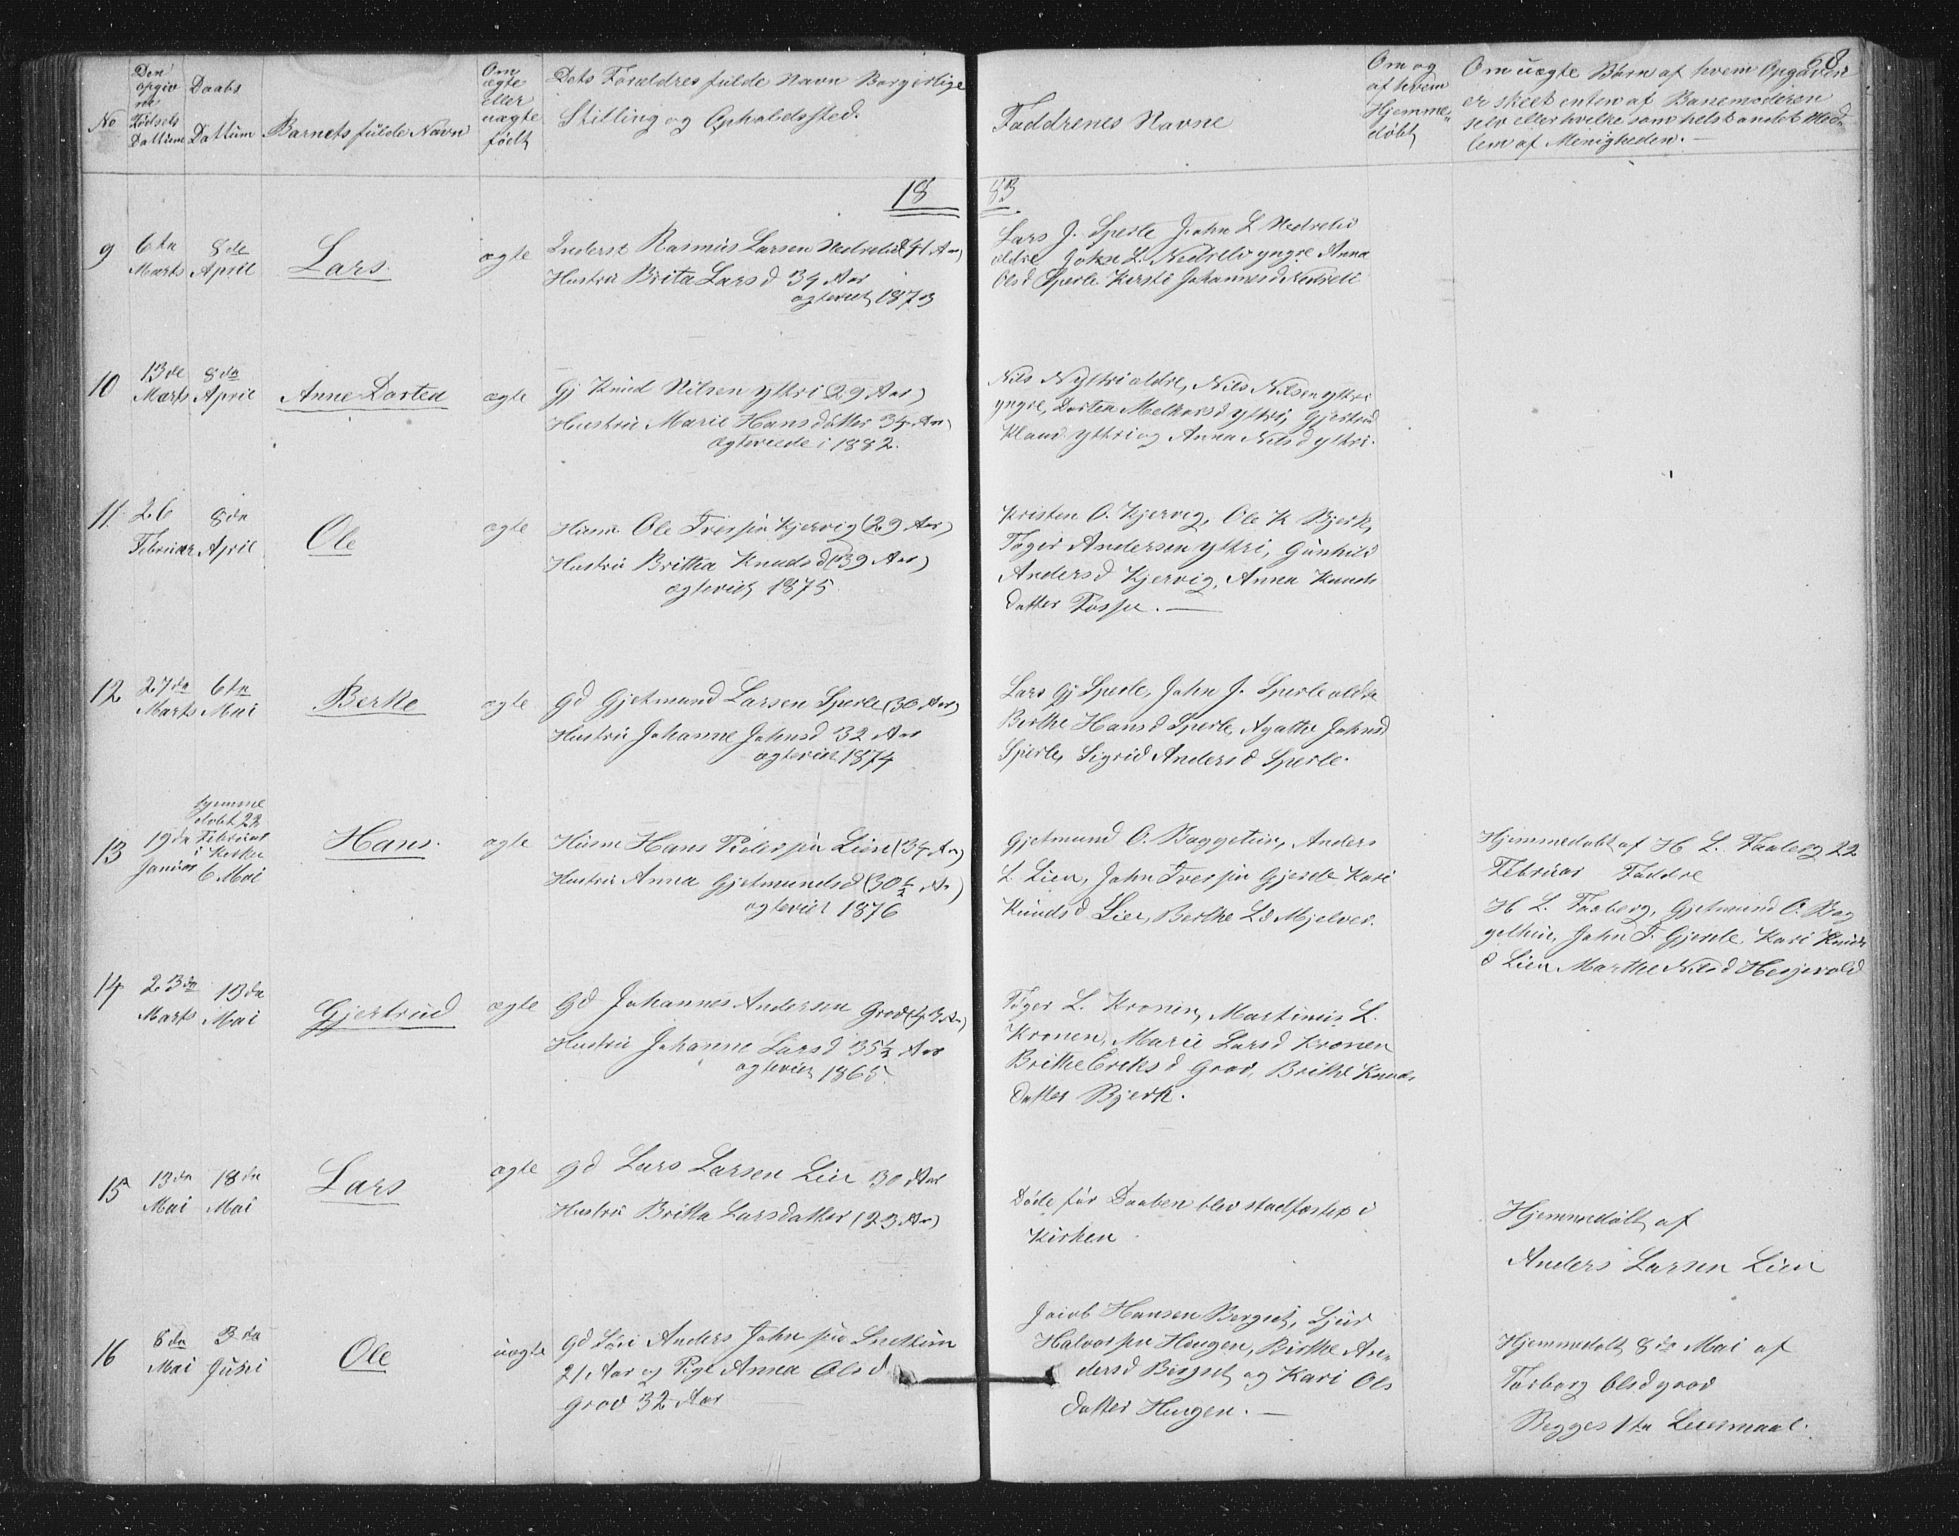 68
No
Den opgivne Fødsels Dattum
Daabs Dattum
Barnets fulde Navn
Om ægte eller uægte født
Dets Forældres fulde Navn Borgerlige
Stilling og Opholdssted.
Faddrenes Navne
Om og af hvem Hjemmedøbt
Om uægte Børn af hvem Opgaven
er skeet enten af Barnemoderen
selv eller hvilke som helst andet Med-
lem af Menigheden. —
18 83
9 6te Marts 8de April Lars ægte
Inderst Rasmus Larsen Nedrelid (41 Aar)
Hustru Brita Larsd 34 Aar
ægteviet 1873
Lars J. Sperle John L Nedrelid
ældre, John L. Nedrelid yngre Anna
Olsd Sperle Kersti Johannesd Nedreli
10 13de Marts 8de April Anne Dortea ægte
Gj Knud Nilsen Ytri (29 Aar)
Hustru Marie Hansdatter 34 Aar
ægteviede i 1882.
Nils N Ytri ældre, Nils Nilsen Ytri
yngre, Dorten Melkersd Ytri, Gjertrud
Klausd Ytri og Anna Nilsd Ytri.
11 26 Februar 8de April Ole ægte
Husm Ole Iversøn Kjervig (29 Aar)
Hustru Britha Knudsd (39 Aar)
ægteviet 1875
Kristen O. Kjervig, Ole K Bjerk,
Tøger Andersen Ytri, Gunhild
Andersd Kjervig, Anna Knuds
datter Fosse. —
12 27de Marts 6te Mai Berte ægte
Gd Gjetmund Larsen Sperle (30 Aar)
Hustru Johanne Johnsd 32 Aar
ægteviet 1874
Lars Gj Sperle, John J. Sperle ældre
Berthe Hansd Sperle, Agathe Johnsd
Sperle, Sigrid Andersd Sperle.
13 19de Januar hjemme døbt 22 Februar i Kirken 6 Mai Hans. ægte
Husm Hans Pedersøn Lien (34 Aar)
Hustru Anna Gjetmundsd (30½ Ar)
ægteviet 1876
Gjetmund O. Baggetun, Anders
L Lien, John Iversøn Gjerde Kari
Knudsd Lien, Berthe Ld Mjelver.
Hjemmedøbt af H L. Faaberg 22
Februar Faddre
H L. Faaberg, Gjetmund O. Bag
gethun, John I. Gjerde, Kari Knuds
d Lien Marthe Nilsd Hesjevold
14 23de Marts 13de Mai Gjertrud ægte
Gd Johannes Andersen Grov (43 Ar)
Hustru Johanne Larsd 35½ Aar
ægteviet 1865.
Tøger L. Kronen, Martinus L.
Kronen, Marie Larsd Kronen
Brithe Eriksd Grov, Brithe Knuds
datter Bjerk.
15 13de Mai 18de Mai Lars ægte
Gd Lars Larsen Lien 30 Aar
Hustru Britta Larsdatter (23 Ar)
Døde før Daaben blev stadfæstet i
Kirken
Hjemmedøbt af
Anders Larsen Lien
16 8de Mai 3de Juni Ole uægte
Gd Søn Anders Johnsøn Snetun
21 Aar og Pige Anna Olsd
Grov 32 Aar
Jacob Hansen Bergset, Sjur
Halvorsøn Hougen, Birthe An-
dersd Bergset og Kari Ols
datter Hougen. —
Hjemmedøbt 8de Mai af
Torborg Olsd Grov
Begges 1te Leiermaal.